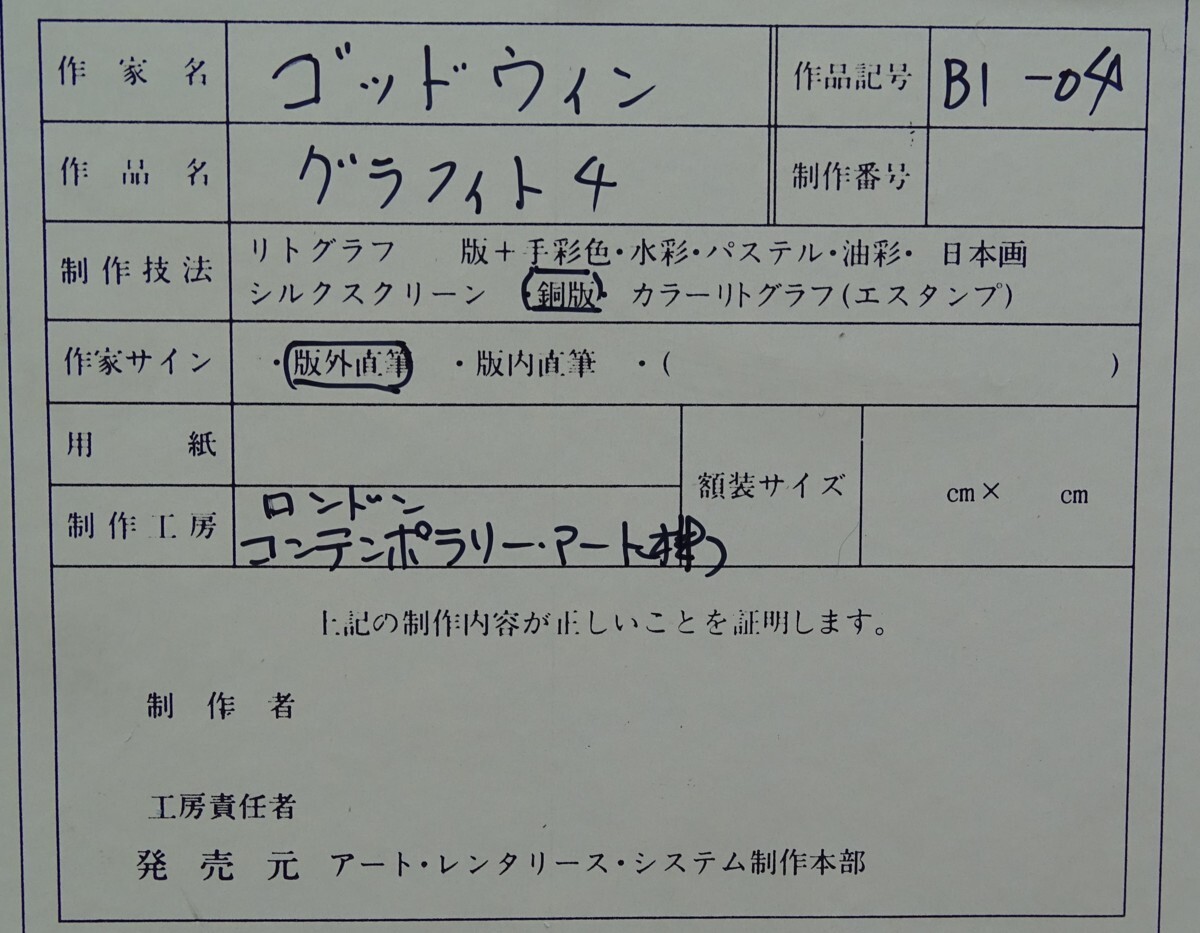 作家名 ゴッドウィン 作品記号 B1-04
作品名 グラフィト4 制作番号
制作技法 リトグラフ 版+手彩色・水彩・パステル・油彩・ 日本画
シルクスクリーン ・銅版・ カラーリトグラフ(エスタンプ)
作家サイン ・版外直筆 ・版内直筆 ・( )
用紙
額装サイズ cm× cm
制作工房 ロンドン
コンテンポラリー・アート(株)
上記の制作内容が正しいことを証明します。
制作者
工房責任者
発売元 アート・レンタリース・システム制作本部